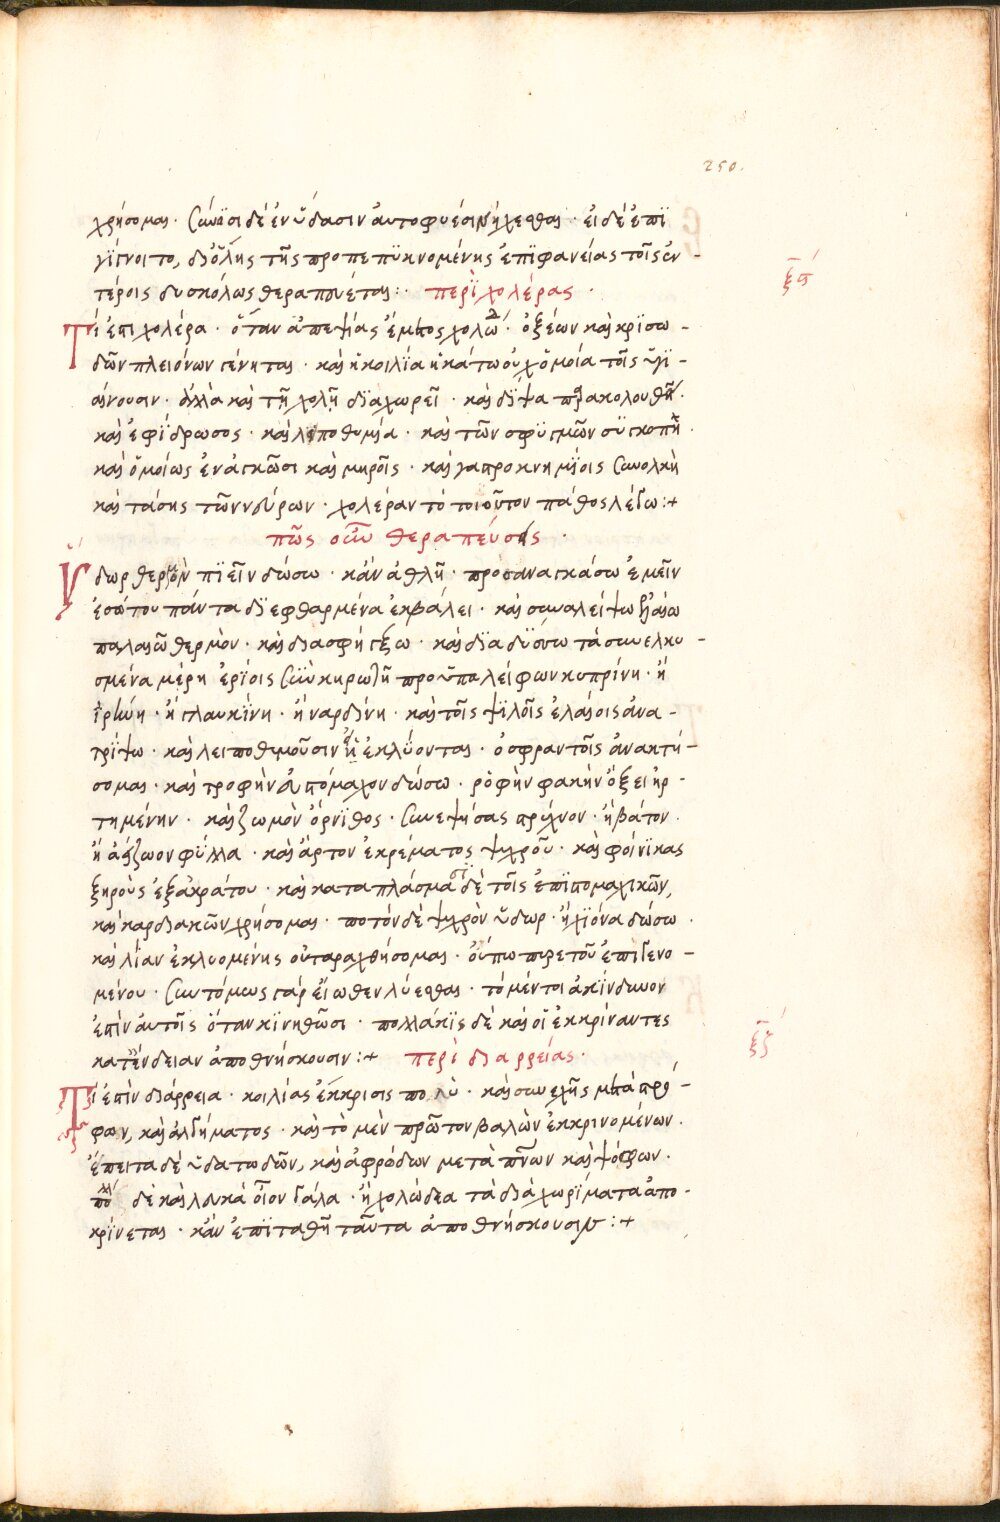 250.
χρήσομαι· συνοίσι δὲ ἐν ὕδασιν ἀυτοφυέσιν ἤχεσθαι· εἰ δὲ ἐπϊ
γίγνοιτο, δι᾽ ὅλης τῆς προπεπϋκνομένης ἐπϊφανείας τοῖς ἐν-
τέροις δυσκόλως θεραπεύεται:· περὶ χολέρας·
ξϛ´
Τί ἐστι χολέρα· ὅταν ἀπεψίας ἔμετος χολω· ὀξέων καὶ κρϊσω-
δῶν πλειόνων γένηται· καὶ ἡ κοιλϊα ἡ κάτω οὐχ ὁμοία τοῖς ὑγϊ-
αίνουσιν· ἀλλὰ καὶ τῇ χολῇ δϊαχωρεῖ· καὶ δϊψα παρακολουθῇ·
καὶ ἐφϊδρωσος· καὶ λιποθυμία· καὶ τῶν σφϋγμῶν σϋγκοπὴ·
καὶ ὁμοίως ἐν ἀγκῶσι καὶ μηροῖς· καὶ γαπροκνημϊοις συνολκὴ
καὶ τάσης τῶν νεύρων· χολέραν τὸ τοιοῦτον πάθος λέγω:+
πῶς οὖν θεραπεύσεις·
Ὕδωρ θερμὸν πϊεῖν δώσω· κἂν ἀθλῆ· προσαναγκάσω ἐμεῖν
ἐσώτου πάντα δϊεφθαρμένα ἐκβάλει· καὶ συναλείψω ἐλαίω
παλαιῶ θερμὸν· καὶ διασφήγξω· καὶ δϊαδϋσω τὰ συνελκυ-
σμένα μέρη ἐρϊοις σὺν κηρωτῆ προϋπαλείφων κυπρίνη· ἢ
ἰρίνη· ἢ γλαυκϊνη· ἢ ναρδίνη· καὶ τοῖς ψϊλοῖς ἐλαίοις ἀνα-
τρίψω· καὶ λειποθυμοῦσιν ἢ ἐκλύονται· ὀσφραντοῖς ἀνακτή-
σομαι· καὶ τροφὴν εὐστόμαχον δώσω· ῥόφὴν φακὴν ὄξει ἠρ-
τημένην· καὶ ζωμὸν ὄρνϊθος· συνεψήσας στρύχνον· ἢ βάτον·
ἢ ἀείζωον φϋλλα· καὶ ἄρτον ἐκρέματος ψυχροῦ· καὶ φοίνϊκας
ξηροὺς ἐξ ἀκράτου· καὶ καταπλάσμασϊ δὲ τοῖς ἐπϊστομαχικῶν,
καὶ καρδιακῶν χρήσομαι· ποτόν δὲ ψυχρὸν ὕδωρ· ἢ χϊόνα δώσω·
καὶ λίαν ἐκλυομένης οὐ ταραχθήσομαι· οὔπω πυρετοῦ ἐπιγενο-
μένου· συντόμως γάρ εἴωθεν λύεσθαι· τὸ μέντοι ἀκίνδυνον
ἐπὶν ἀυτοῖς ὅταν κϊνηθῶσι· πολλάκϊς δὲ καὶ οἱ ἐκκρίναντες
κατ᾽ ἔνδειαν ἀποθνήσκουσιν:+ περὶ διαρρείας·
ξζ´
Τί ἐστὶν διάρρεια· κοιλίας ἔκκρισις πολὺ· καὶ συνεχῆς μετὰ στρό-
φων, καὶ ἀλγήματος· καὶ τὸ μὲν πρῶτον βαλὼν ἐκκρινομένων·
ἔπειτα δὲ ὑδατωδῶν, καὶ ἀφρόδων μετὰ πνων καὶ ψόφων·
πο δὲ καὶ λευκὰ οἷον γάλα· ἢ χολώδεα τὰ διὰχωρϊματα ἀπο-
κρϊνεται· κἂν ἐπϊταθῆ ταῦτα ἀποθνήσκουσιν:+